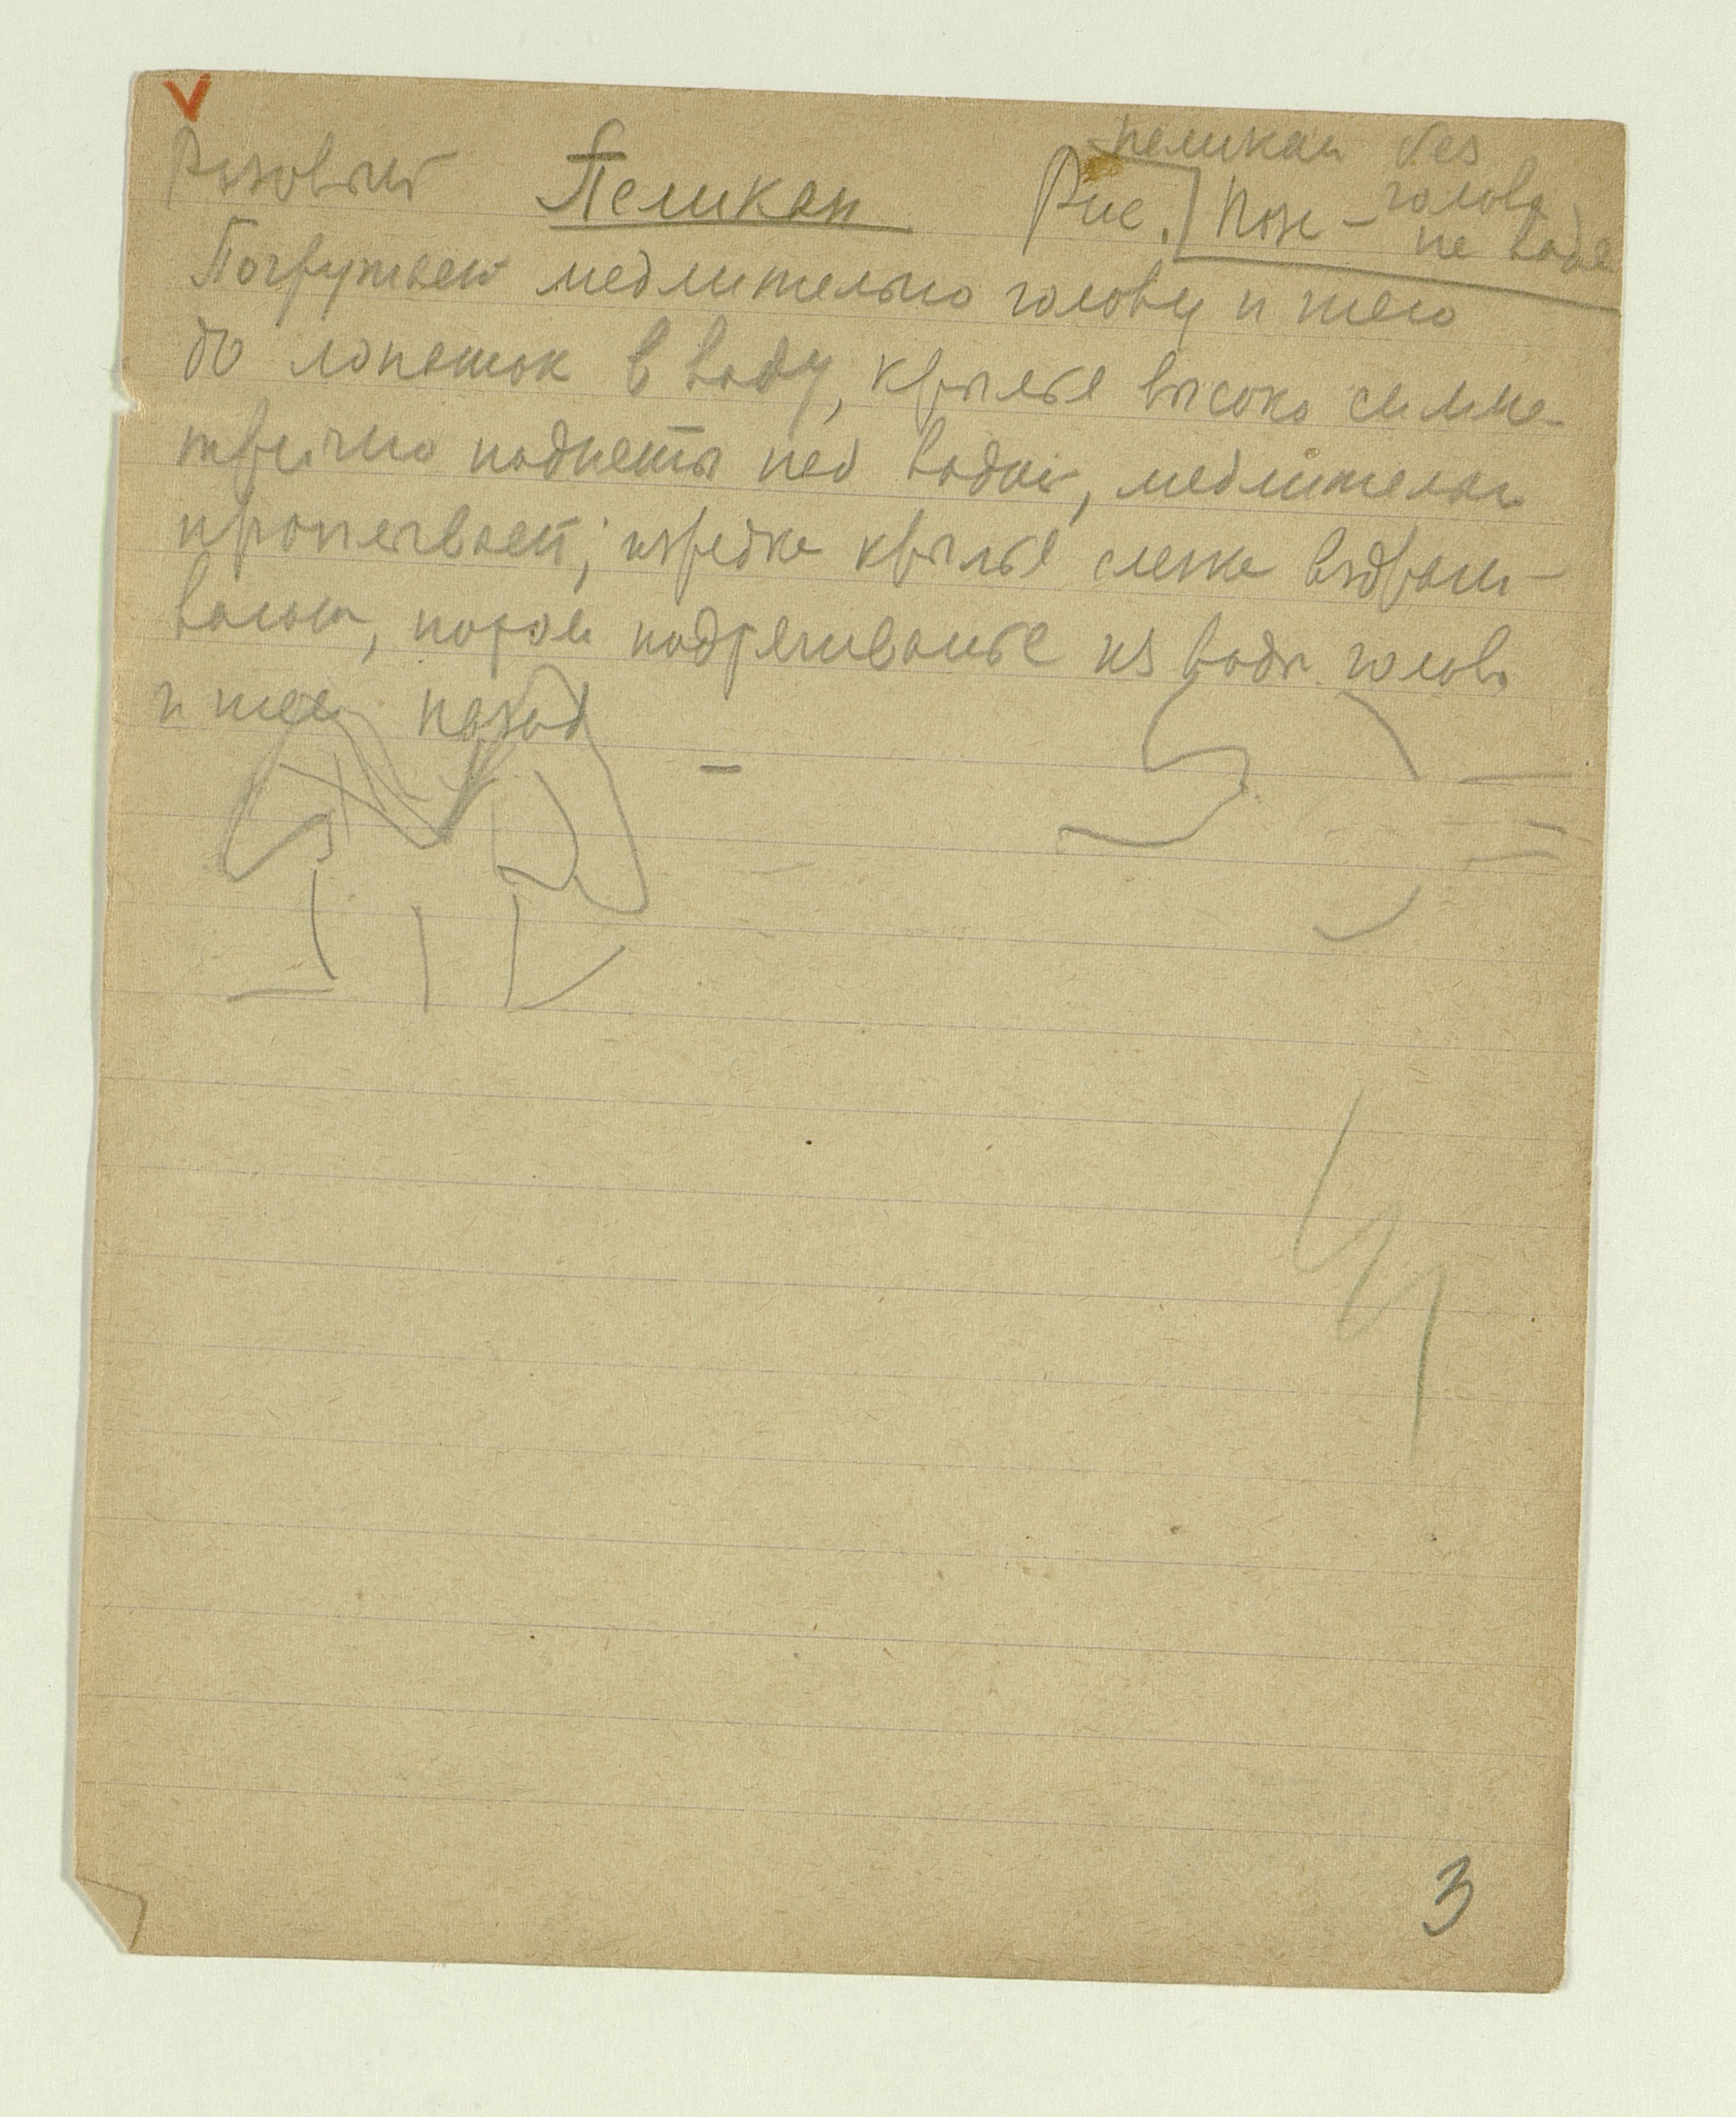 Розовый Пеликан Рис. Поза — пеликан без
головы
на воде
Погружает медлительно голову и шею
до лопаток в воду, крылья высоко симме-
трично подняты над водой, медлительно
изредка крылья слегка вздраги-
вают, потом из воды головы
и шеи назад
3